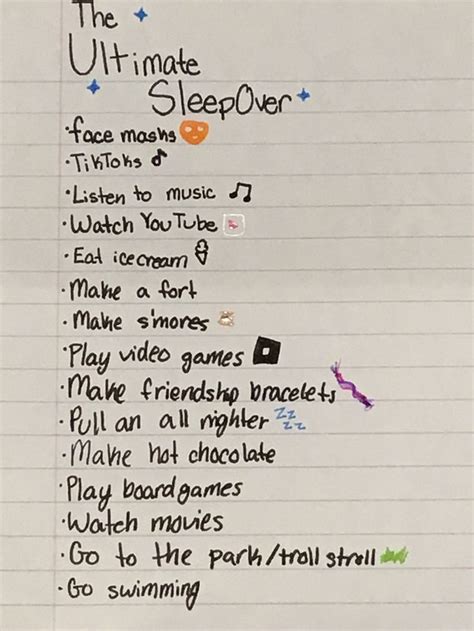 The
Ultimate
SleepOver
·face masks
·TikToks
·Listen to music
·Watch YouTube
·Eat icecream
·Make a fort
·Make s'mores
·Play video games
·Make friendship bracelets
·Pull an all nighter zz zz
·Make hot chocolate
·Play boardgames
·Watch movies
·Go to the park/troll stroll
·Go swimming